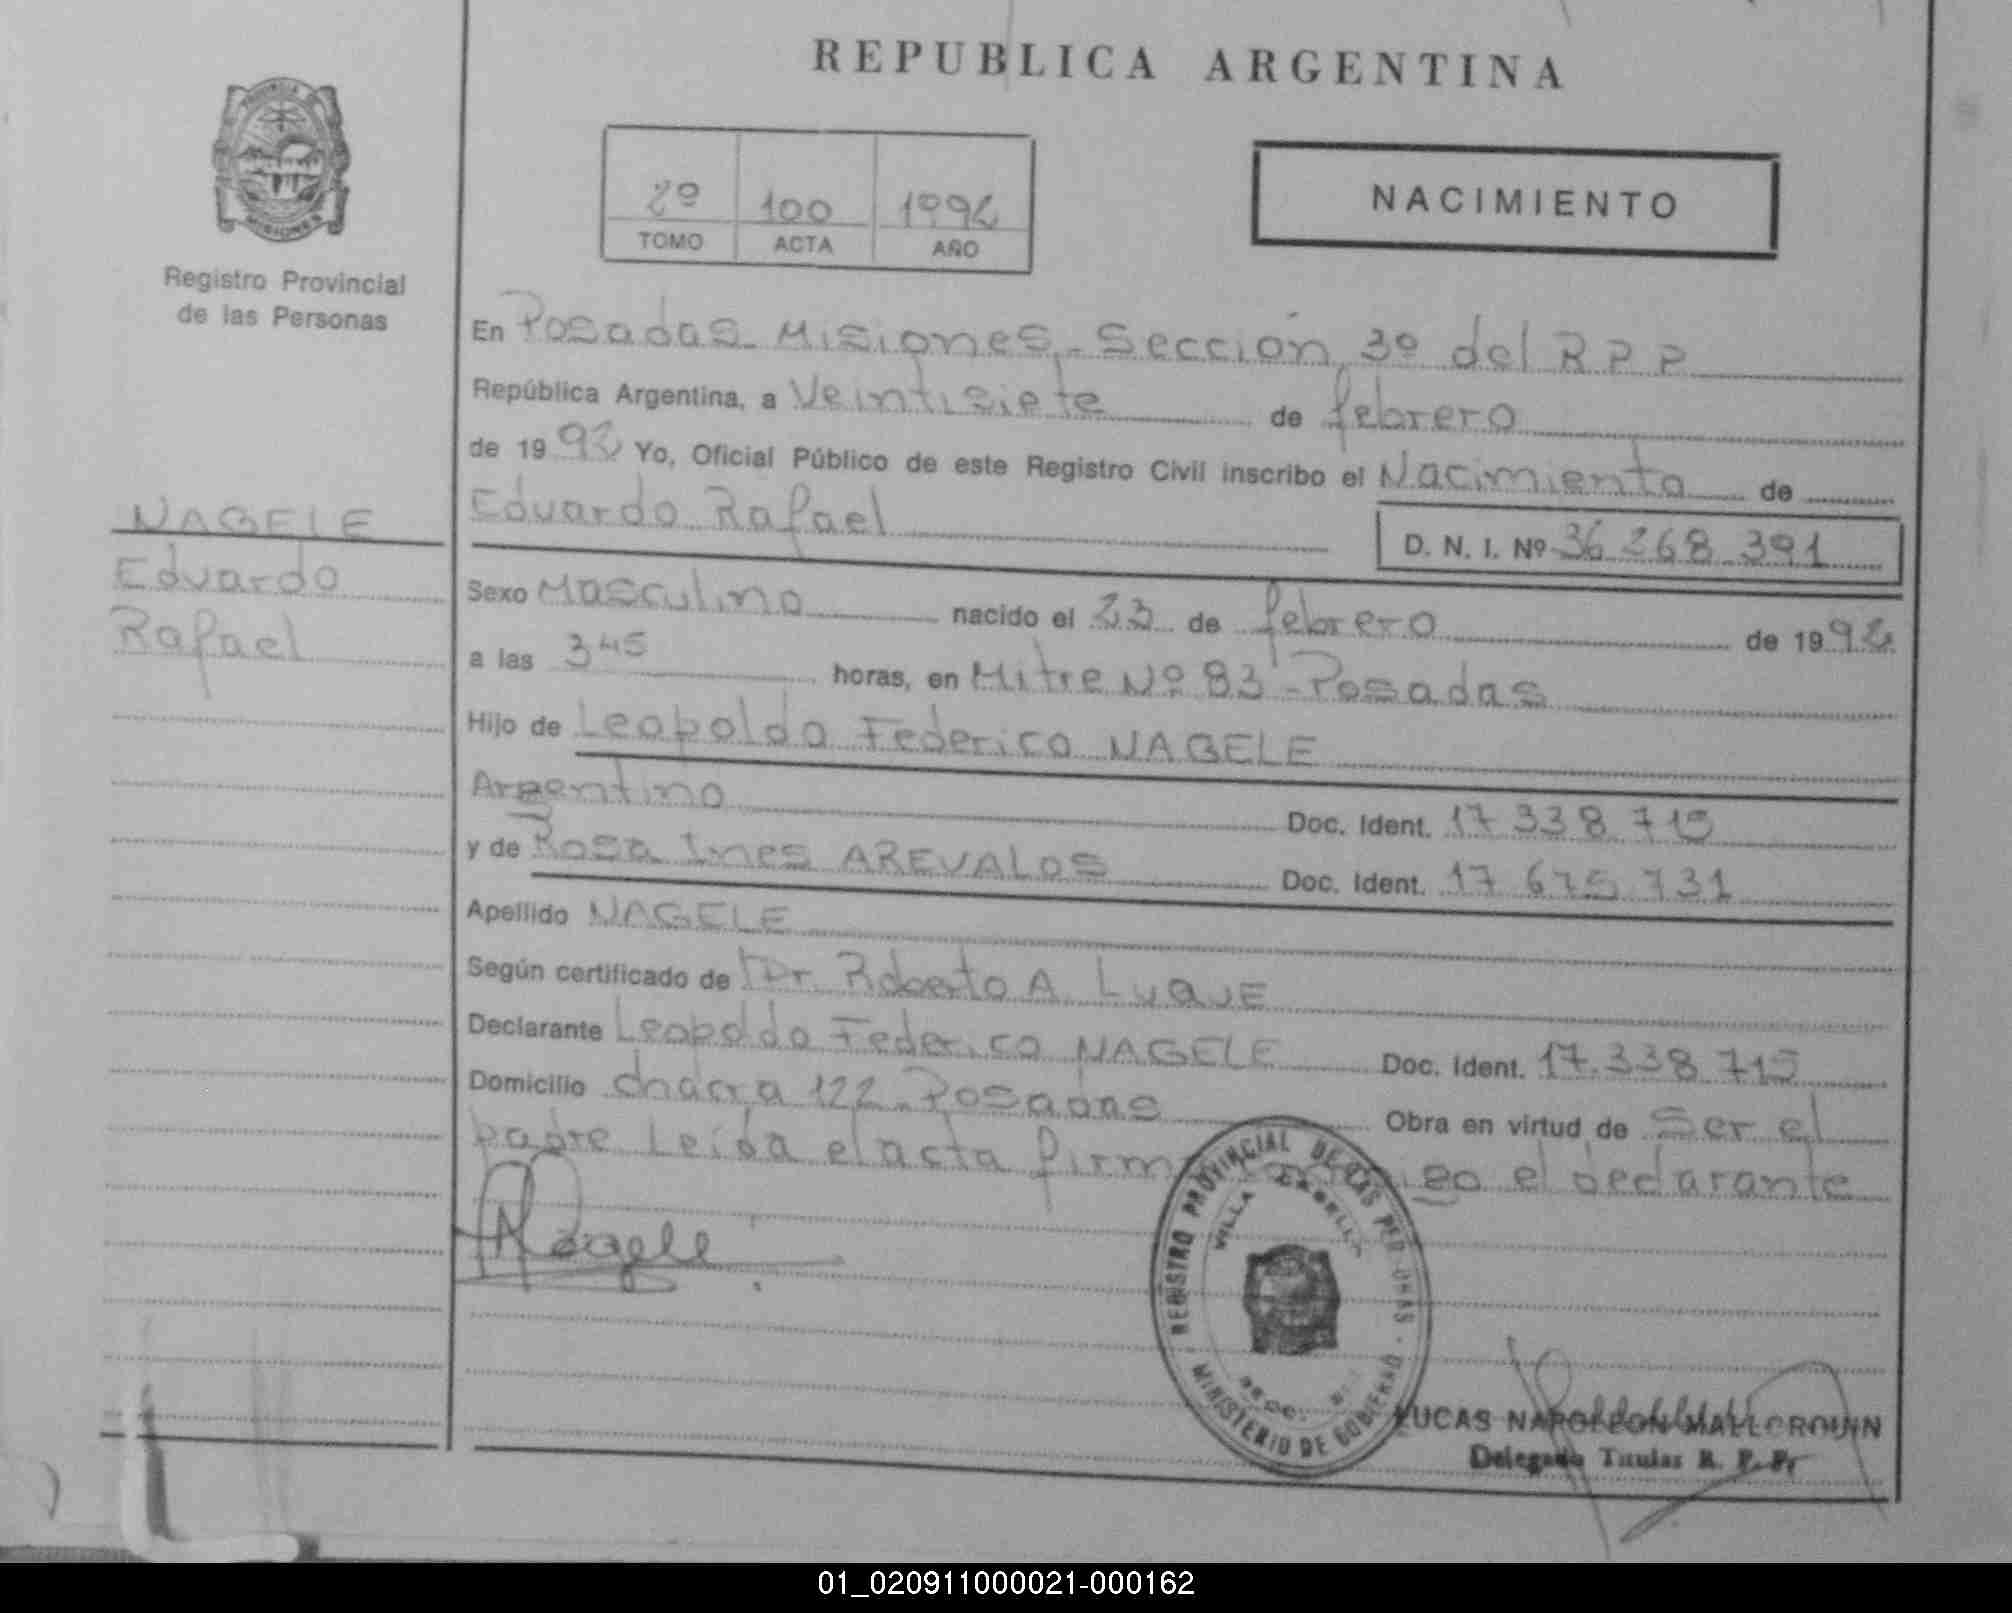 REPUBLICA ARGENTINA
PROVINCIA DE
MISIONES
Registro Provincial
de las Personas
2º 100 1992
TOMO ACTA AÑO
NACIMIENTO
En Posadas Misiones - Sección 3º del R P P
República Argentina, a Veintisiete de febrero
de 19 92 Yo, Oficial Público de este Registro Civil inscribo el Nacimiento de
Eduardo Rafael
D. N. I. Nº 36 268 391
NAGELE
Eduardo
Rafael
Sexo Masculino nacido el 23 de febrero de 19 92
a las 3 45 horas, en Mitre Nº 83 - Posadas
Hijo de Leopoldo Federico NAGELE
Argentino Doc. Ident. 17 338 715
y de Rosa Ines AREVALOS Doc. Ident. 17 675 731
Apellido NAGELE
Según certificado de Dr. Roberto A. LUQUE
Declarante Leopoldo Federico NAGELE Doc. Ident. 17.338 715
Domicilio chacra 122 - Posadas Obra en virtud de Ser el
padre Leída el acta firma conmigo el declarante
Nagele
REGISTRO PROVINCIAL DE LAS PERSONAS
VILLA CABELLO
SECC.
MINISTERIO DE GOBIERNO
LUCAS NAPOLEON
Delegado Titular R. P. P.
01_020911000021-000162